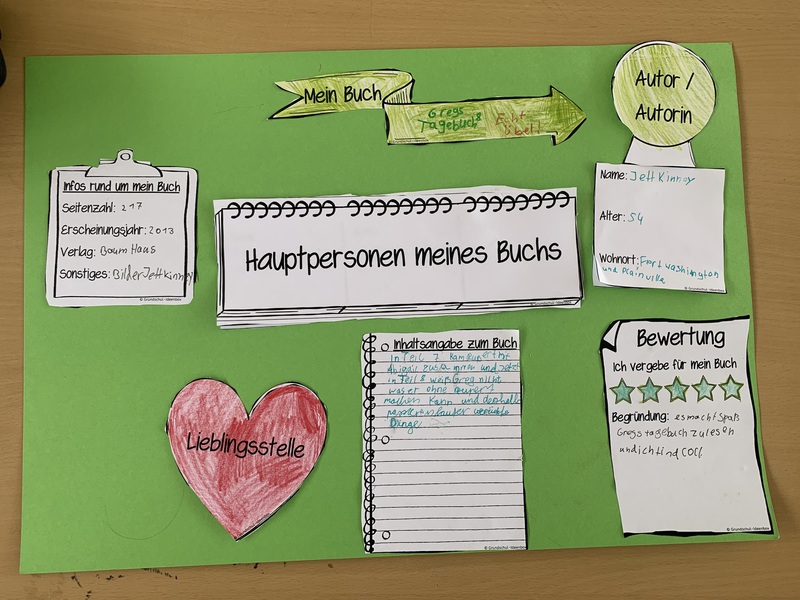 Mein Buch
Gregs
Tagebuch 8
Echt
übel!
Autor /
Autorin
Name: Jeff Kinney
Alter: 54
Wohnort: Fort washington
und Plainville
© Grundschul-Ideenbox
Infos rund um mein Buch
Seitenzahl: 217
Erscheinungsjahr: 2013
Verlag: Baum Haus
Sonstiges: Bilder Jeff kinney
© Grundschul-Ideenbox
Hauptpersonen meines Buchs
© Grundschul-Ideenbox
Lieblingsstelle
Inhaltsangabe zum Buch
in Teil 7 kam Rupert mit
Abigail zusammen und jetzt
in Teil 8 weiß Greg nicht
was er ohne Rupert
machen kann und deshalb
passieren lauter verrückte
Dinge
© Grundschul-Ideenbox
Bewertung
Ich vergebe für mein Buch
Begründung: es macht Spaß
Gregs tagebuch zu lesen
und ich find COOL
© Grundschul-Ideenbox